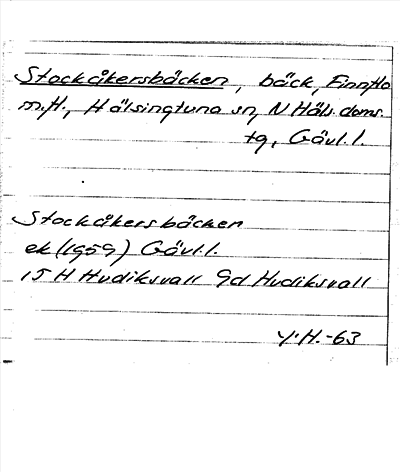 Stockåkersbäcken, bäck, Finnflo
m.fl., Hälsingtuna sn, N Häls. doms.
tg, Gävl.l.
Stockåkersbäcken
ek (1959) Gävl.l.
15 H Hudiksvall 9d Hudiksvall
Y.H.-63